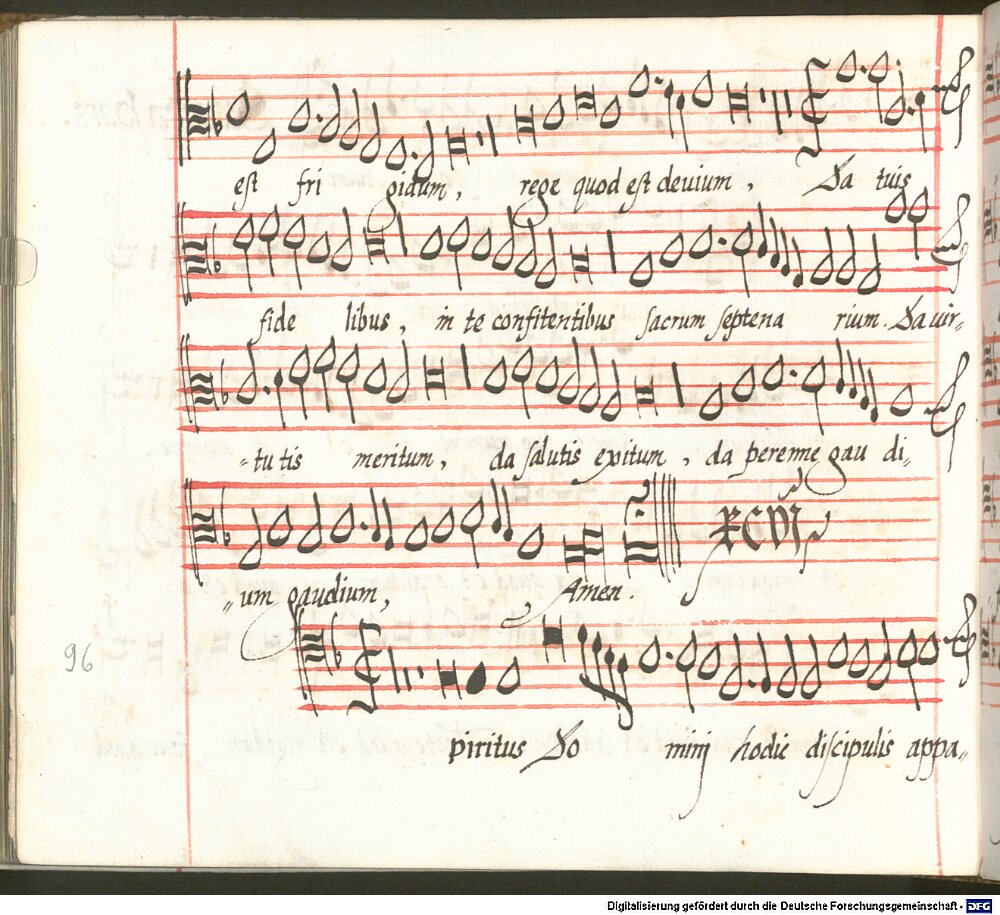 est fri gidum, rege quod est devium, Da tuis
fide libus, in te confitentibus sacrum septena rium. Da vir-
-tu tis meritum, da salutis exitum, da perenne gau di-
-um gaudium, Amen.
XCVI
96
piritus Do minj hodie discipulis appa-
Digitalisierung gefördert durch die Deutsche Forschungsgemeinschaft - DFG